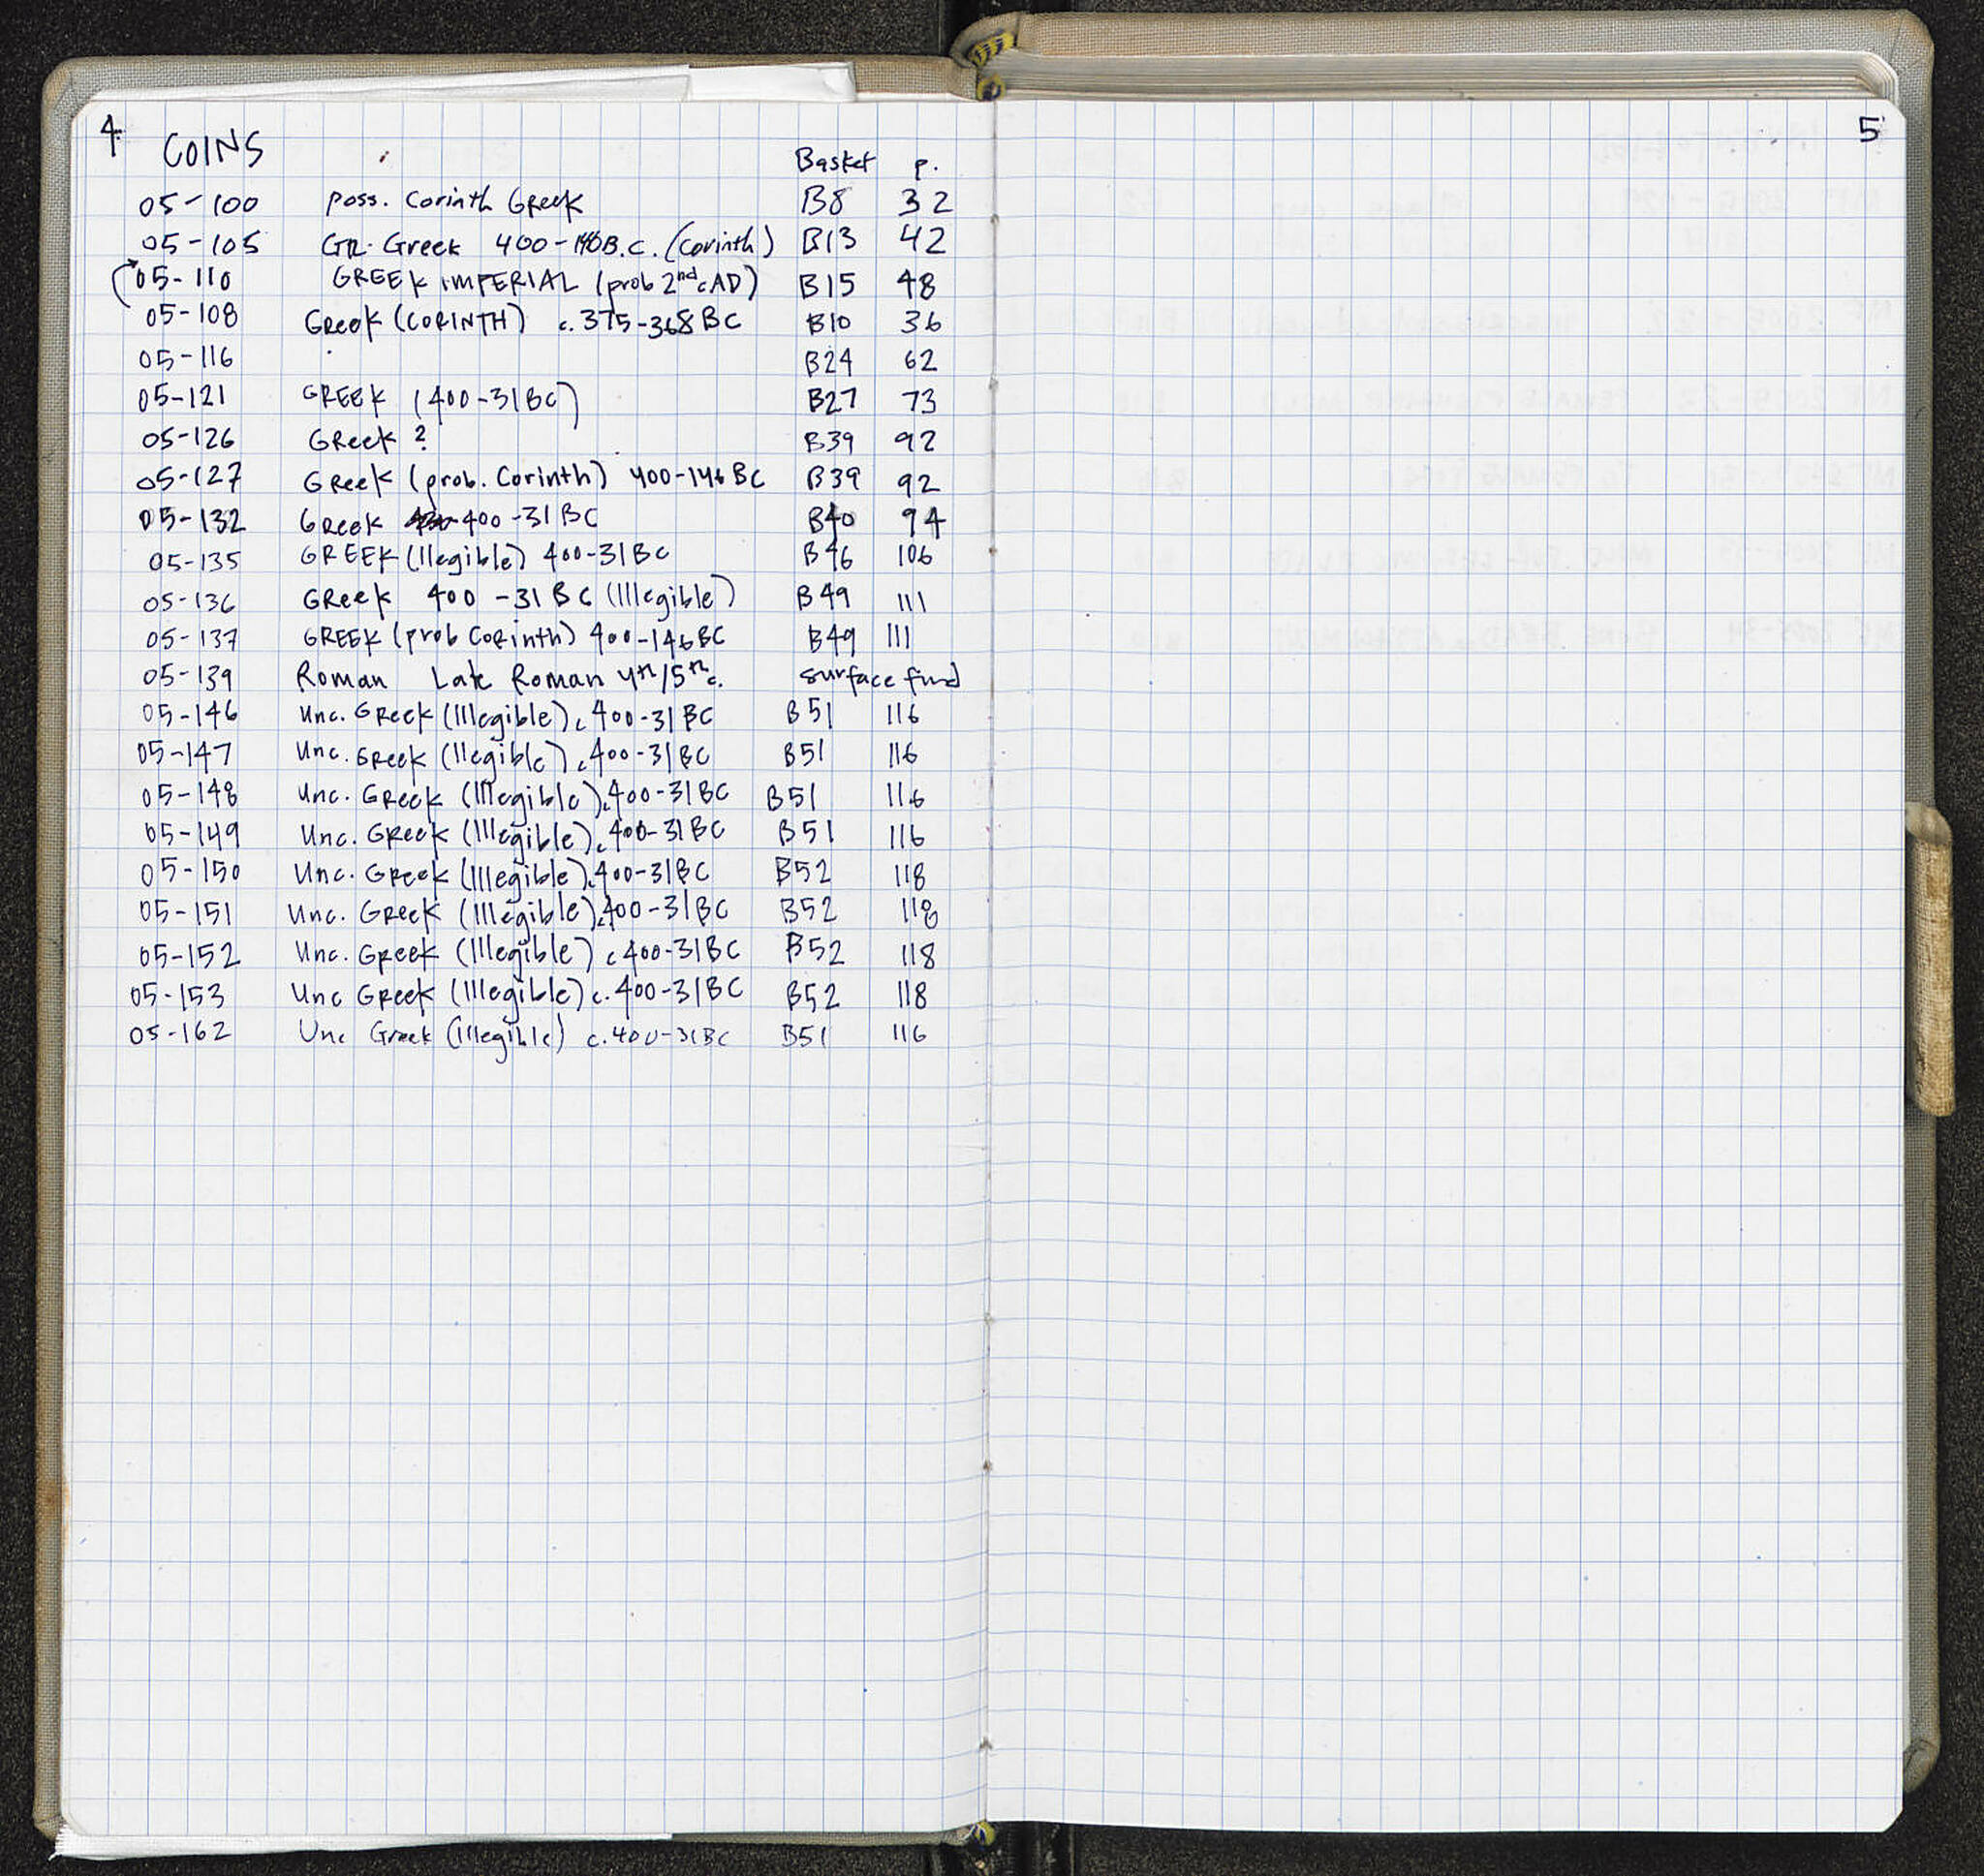 4 COINS
Basket p.
05-100 poss. Corinth Greek B8 32
05-105 GR. Greek 400-146B.C. (Corinth) B13 42
05-110 GREEK IMPERIAL (prob 2nd c AD) B15 48
05-108 Greek (CORINTH) c. 375-368 BC B10 36
05-116 B24 62
05-121 GREEK (400-31BC) B27 73
05-126 GReek ? B39 92
05-127 GReek (prob. Corinth) 400-146 BC B39 92
05-132 Greek 400-31 BC B40 94
05-135 GREEK (Ilegible) 400-31BC B46 106
05-136 GReek 400-31 BC (Illegible) B49 111
05-137 GREEK (prob CoRinth) 400-146BC B49 111
05-139 Roman Late Roman 4th/5th c. surface find
05-146 Unc. GReek (Illegible) c 400-31 BC B51 116
05-147 Unc. GReek (Ilegible) c 400-31BC B51 116
05-148 Unc. GReek (Illegible) c. 400-31BC B51 116
05-149 Unc. GReek (Illegible) c. 400-31BC B51 116
05-150 Unc. GReek (Illegible) c. 400-31BC B52 118
05-151 Unc. GReek (Illegible) c. 400-31BC B52 118
05-152 Unc. GReek (Illegible) c 400-31BC B52 118
05-153 Unc GReek (Illegible) c. 400-31BC B52 118
05-162 Unc Greek (Illegible) c. 400-31BC B51 116
5